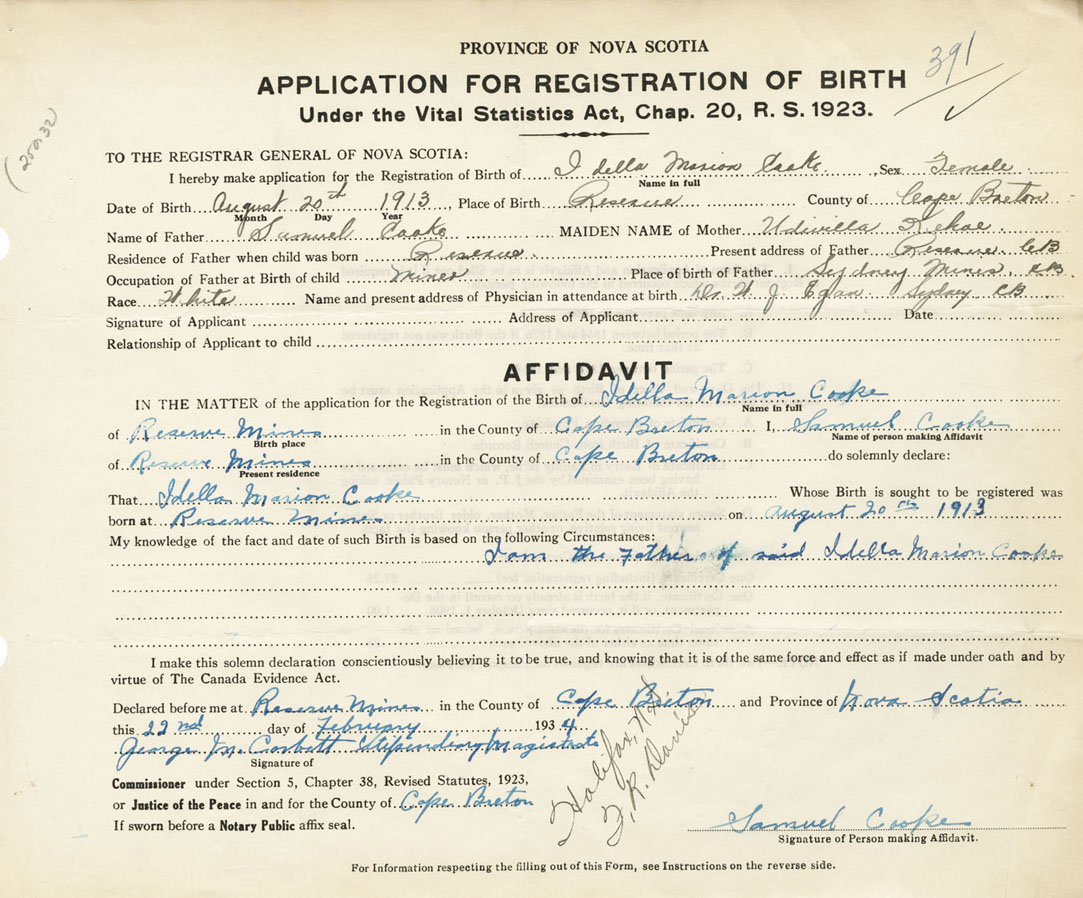 PROVINCE OF NOVA SCOTIA
391
APPLICATION FOR REGISTRATION OF BIRTH
Under the Vital Statistics Act, Chap. 20, R. S. 1923.
TO THE REGISTRAR GENERAL OF NOVA SCOTIA:
I hereby make application for the Registration of Birth of Idella Marion Cooke, Sex Female
Name in full
Date of Birth August 20th 1913, Place of Birth Reserve County of Cape Breton
Month Day Year
Name of Father Samuel Cooke MAIDEN NAME of Mother Kehoe
Residence of Father when child was born Reserve Present address of Father Reserve CB
Occupation of Father at Birth of child Miner Place of birth of Father Sydney Mines, CB
Race White Name and present address of Physician in attendance at birth Dr. W J Egan Sydney CB
Signature of Applicant Address of Applicant Date
Relationship of Applicant to child
AFFIDAVIT
IN THE MATTER of the application for the Registration of the Birth of Idella Marion Cooke
Name in full
of Reserve Mines in the County of Cape Breton I, Samuel Cooke
Birth place Name of person making Affidavit
of Reserve Mines in the County of Cape Breton do solemnly declare:
Present residence
That Idella Marion Cooke Whose Birth is sought to be registered was
born at Reserve Mines on August 20th 1913
My knowledge of the fact and date of such Birth is based on the following Circumstances:
I am the Father of said Idella Marion Cooke
I make this solemn declaration conscientiously believing it to be true, and knowing that it is of the same force and effect as if made under oath and by
virtue of The Canada Evidence Act.
Declared before me at Reserve Mines in the County of Cape Breton and Province of Nova Scotia
this 22nd day of February 1934
George M. Corbett Stipendiary Magistrate
Signature of
Commissioner under Section 5, Chapter 38, Revised Statutes, 1923,
or Justice of the Peace in and for the County of Cape Breton
If sworn before a Notary Public affix seal.
Halifax, N.S.
F. R. Davis
Samuel Cooke
Signature of Person making Affidavit.
For Information respecting the filling out of this Form, see Instructions on the reverse side.